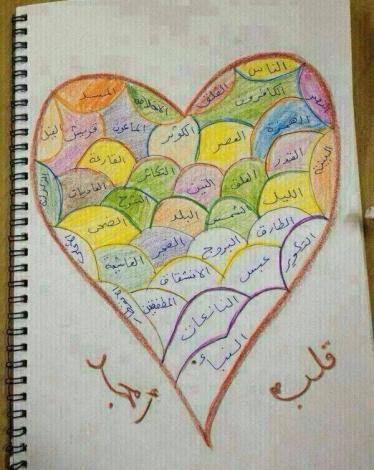 الناس
الفلق
الكافرون
النصر
المسد
الإخلاص
الهمزة
العصر
الكوثر
الماعون
قريش
الفيل
البينة
القدر
التكاثر
القارعة
العلق
التين
العاديات
الزلزلة
الليل
الشمس
البلد
الشرح
الضحى
الطارق
البروج
الفجر
الغاشية
الأعلى
التكوير
عبس
الانشقاق
المطففين
الانفطار
النازعات
النباء
قلب